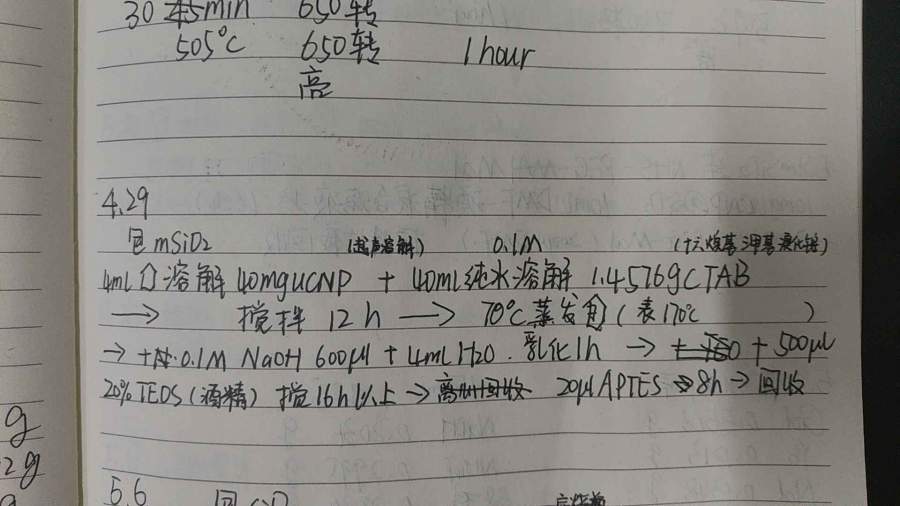 30 45min 650转
505℃ 650转 1hour
高
4.29
包mSiO2 (超声溶解) 0.1M (十六烷基三甲基溴化铵)
4ml 溶解40mgUCNP + 40ml纯水溶解 1.4576gCTAB
→ 搅拌 12h → 70℃蒸发 (表170℃ )
→ + 0.1M NaOH 600μl + 4ml H2O. 乳化1h → + 500μl
20% TEOS (酒精) 搅16h以上 → 离心回收 20μl APTES → 8h → 回收
g
2g
5.6